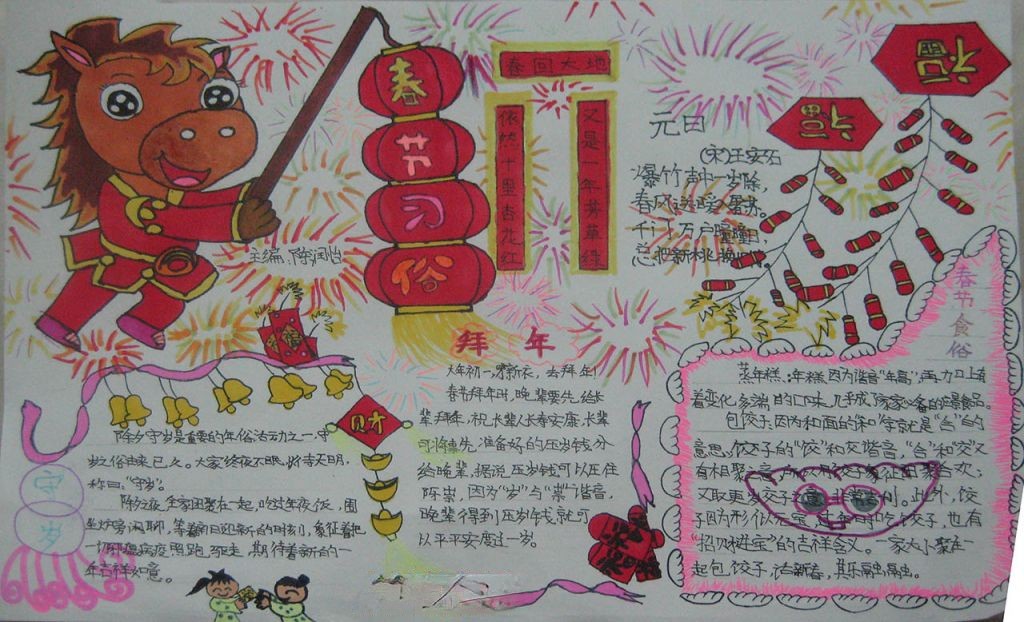 春节习俗
春回大地
又是一年芳草绿
依然十里杏花红
福
福
元日
(宋)王安石
爆竹声中一岁除,
春风送暖入屠苏。
千门万户曈曈日,
总把新桃换旧符。
主编:陈润怡
春节食俗
拜年
大年初一,穿新衣,去拜年!
春节拜年时,晚辈要先给长
辈拜年,祝长辈人长寿安康,长辈
可将事先准备好的压岁钱分
给晚辈,据说压岁钱可以压住
邪祟,因为"岁"与"祟"谐音,
晚辈得到压岁钱就可
以平平安安度过一岁。
财
守岁
除夕守岁是重要的年俗活动之一,守
岁之俗由来已久。大家终夜不眠,以待天明,
称曰:"守岁"。
除夕夜,全家团聚在一起,吃过年夜饭,围
坐炉旁闲聊,等着辞旧迎新的时刻,象征着把
一切邪瘟病疫照跑驱走,期待着新的一
年吉祥如意。
蒸年糕:年糕因为谐音"年高",再加上有
着变化多端的口味,几乎成了家家必备的应景食品。
包饺子:因为和面的"和"字就是"合"的
意思,饺子的"饺"和"交"谐音,"合"和"交"又
有相聚之意,所以用饺子象征团聚合欢,
又取更岁交子之意,非常吉利。此外,饺
子因为形似元宝,过年时吃饺子,也有
"招财进宝"的吉祥含义。一家大小聚在一
起包饺子,话新春,其乐融融。